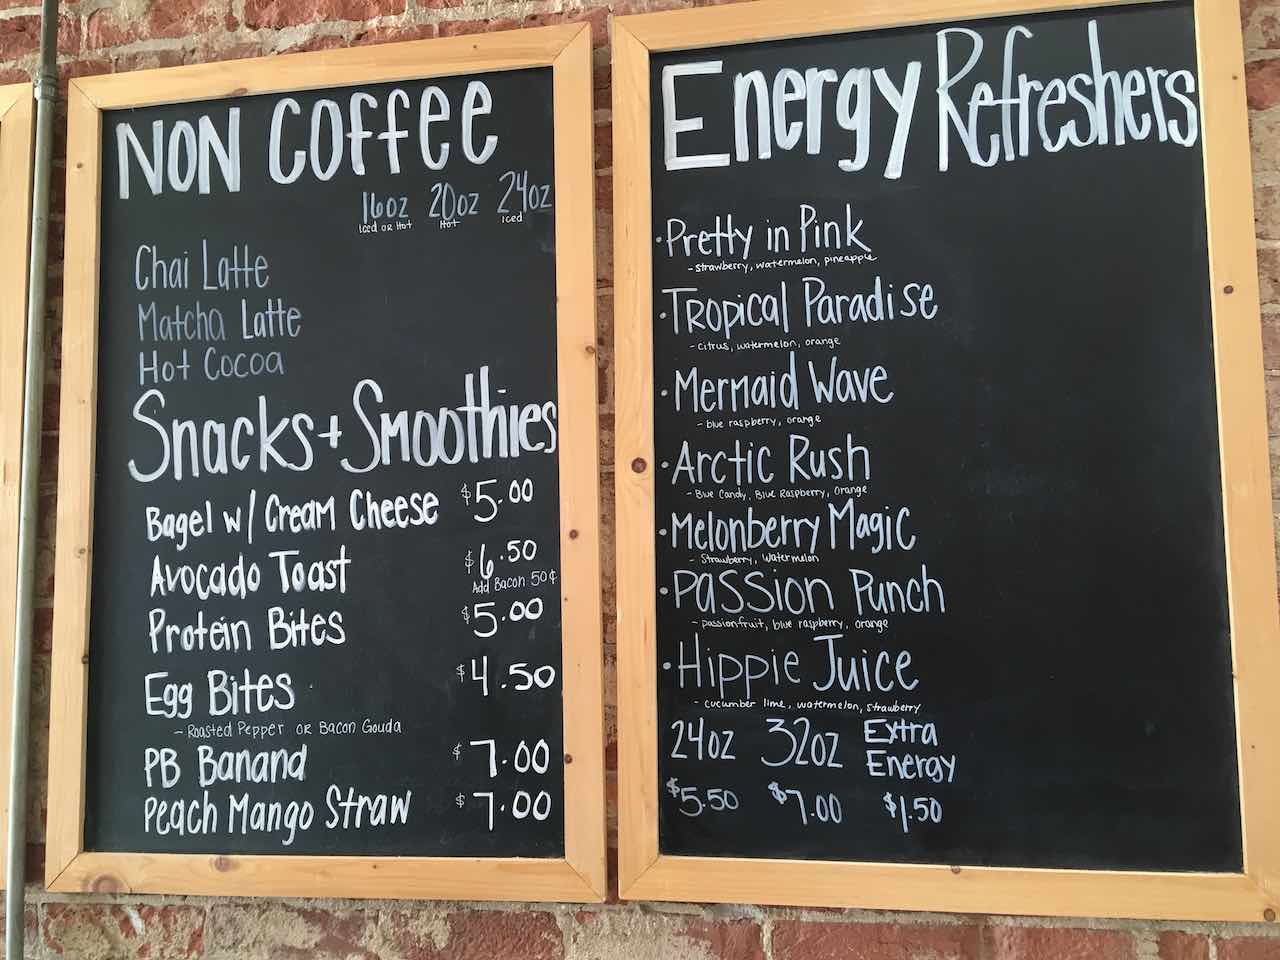 NON COFFEE
16oz 20oz 24oz
Iced or Hot Hot Iced
Chai Latte
Matcha Latte
Hot Cocoa
Snacks + Smoothies
Bagel w/ Cream Cheese $5.00
Avocado Toast $6.50
Add Bacon 50¢
Protein Bites $5.00
Egg Bites $4.50
- Roasted Pepper or Bacon Gouda
PB Banana $7.00
Peach Mango Straw $7.00
Energy Refreshers
• Pretty in Pink
- strawberry, watermelon, pineapple
• Tropical Paradise
- citrus, watermelon, orange
• Mermaid Wave
- blue raspberry, orange
• Arctic Rush
- Blue Candy, Blue Raspberry, Orange
• Melonberry Magic
- Strawberry, Watermelon
• Passion Punch
- passionfruit, blue raspberry, orange
• Hippie Juice
- cucumber lime, watermelon, strawberry
24oz 32oz Extra Energy
$5.50 $7.00 $1.50